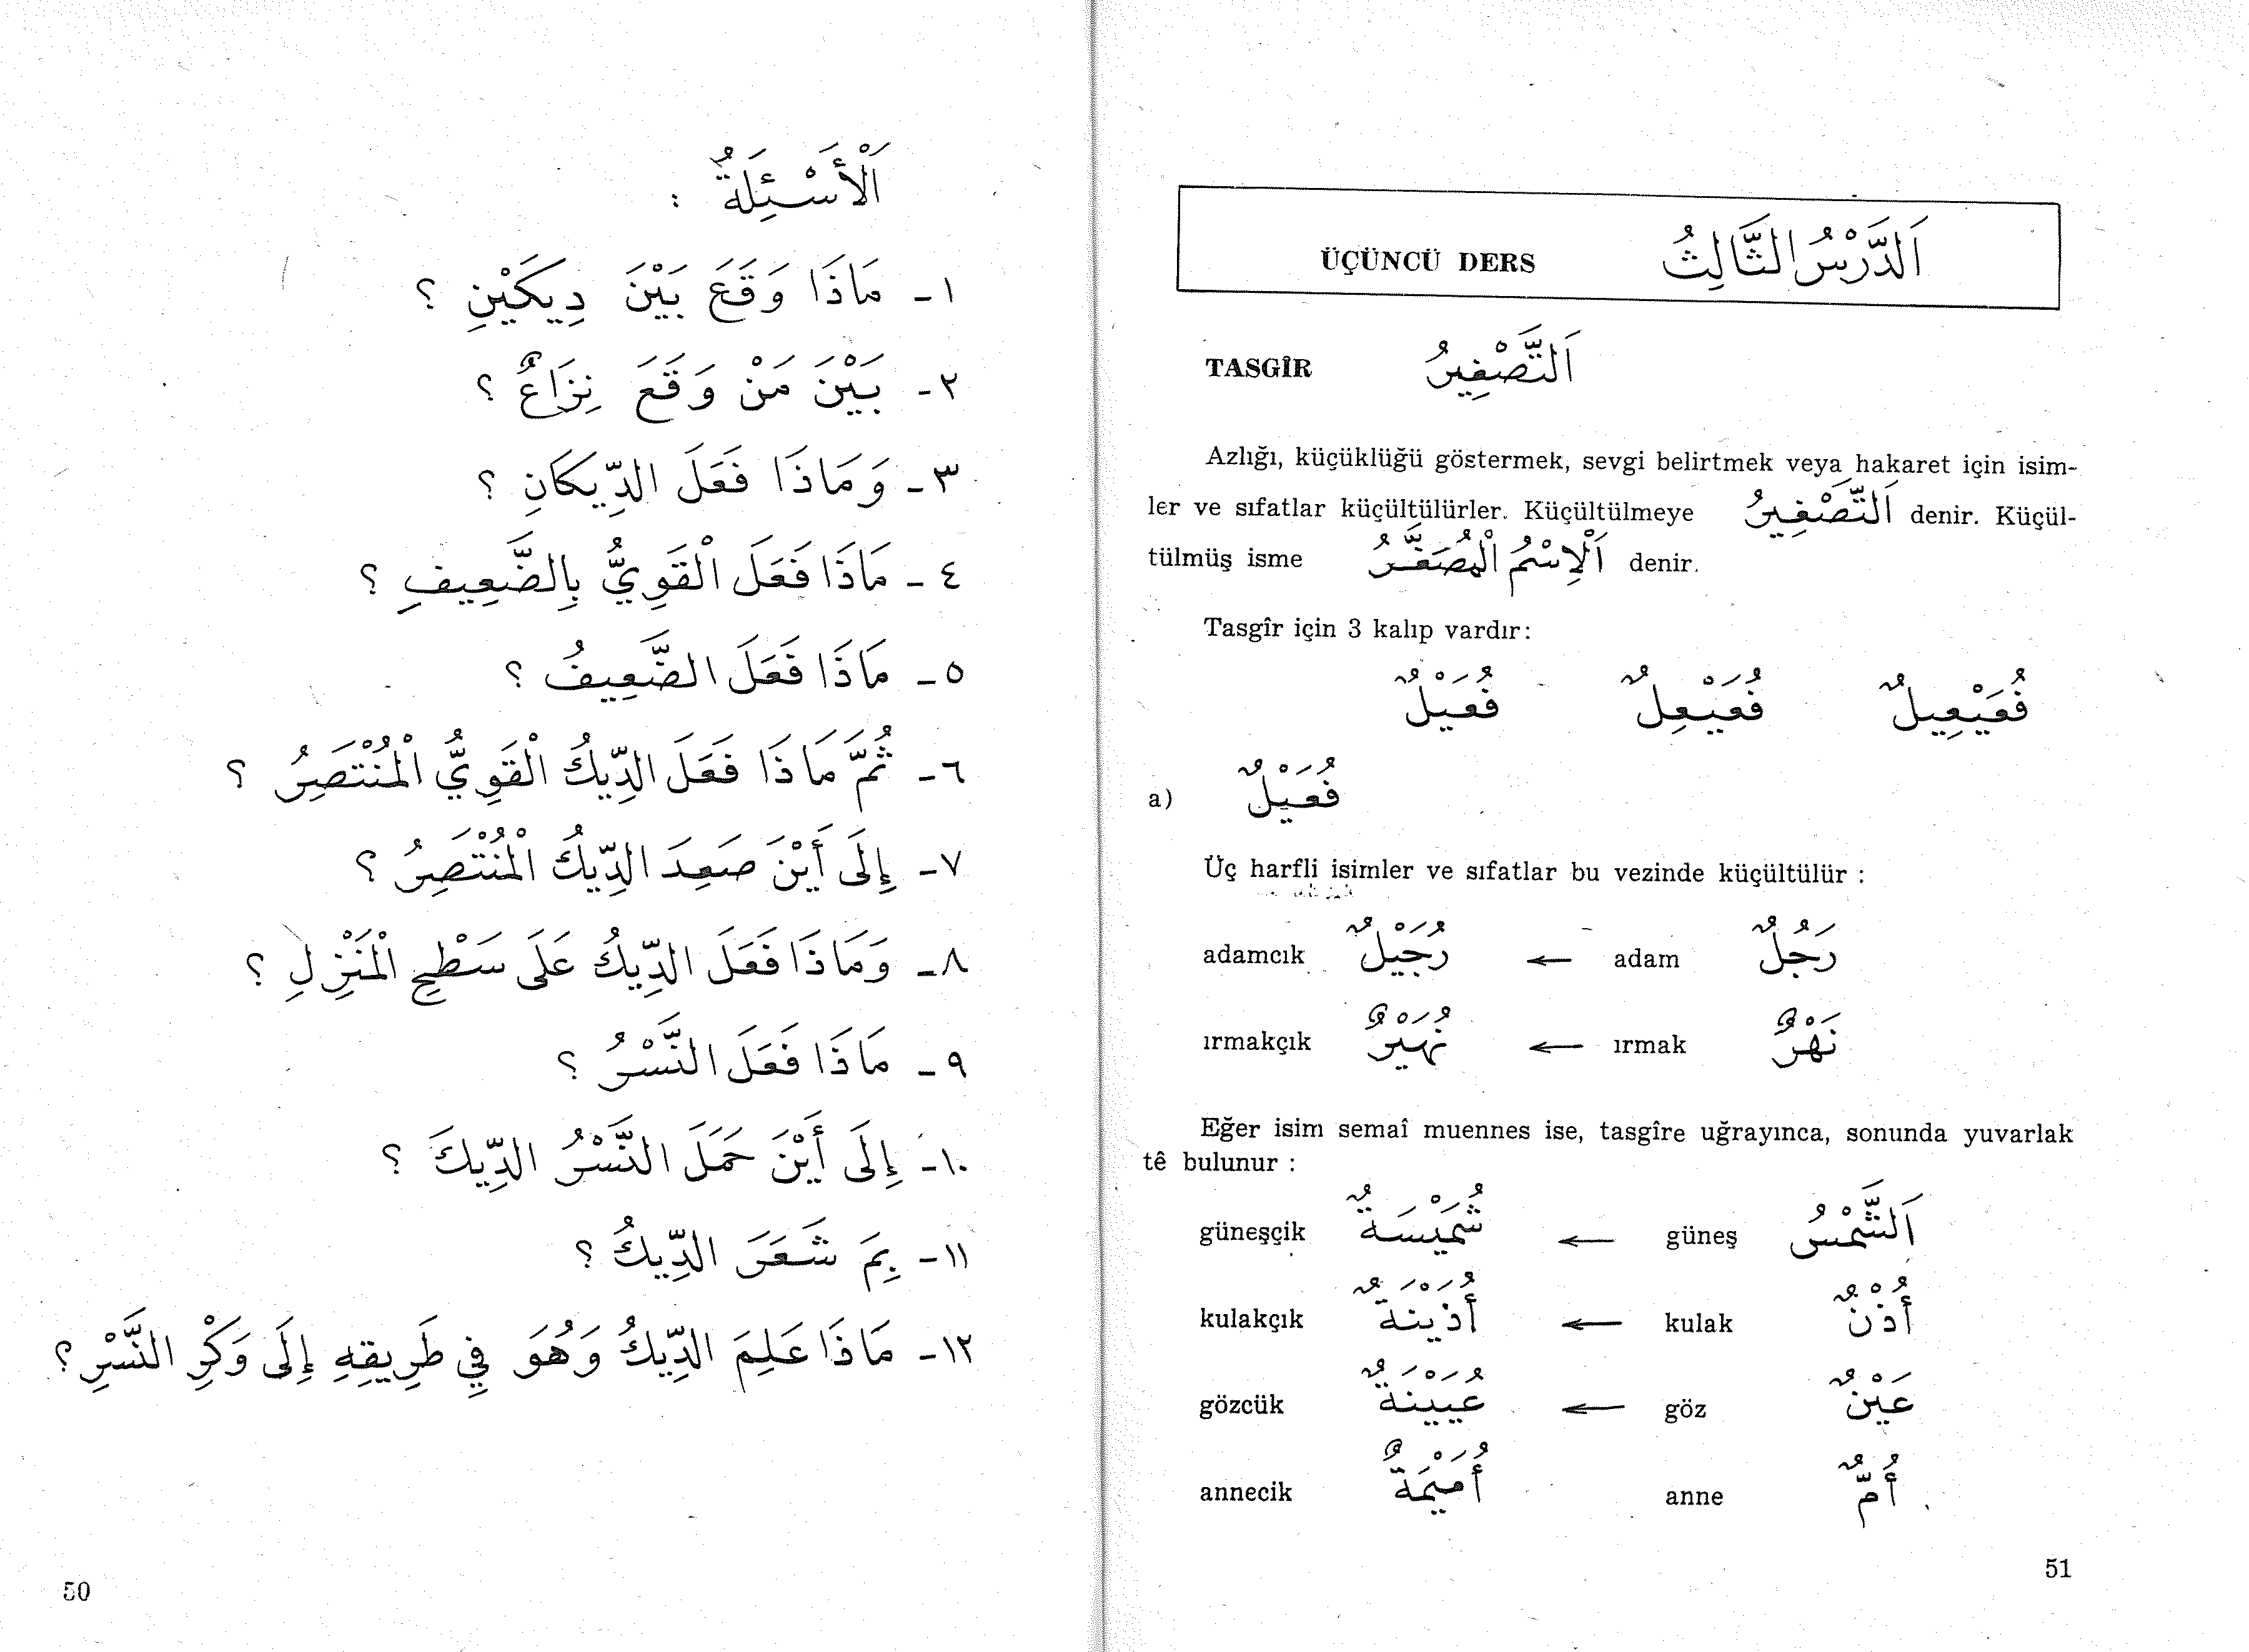 اَلْأَسْئِلَةُ :
١- مَاذَا وَقَعَ بَيْنَ دِيكَيْنِ ؟
٢- بَيْنَ مَنْ وَقَعَ نِزَاعٌ ؟
٣- وَمَاذَا فَعَلَ الدِّيكَانِ ؟
٤- مَاذَا فَعَلَ الْقَوِيُّ بِالضَّعِيفِ ؟
٥- مَاذَا فَعَلَ الضَّعِيفُ ؟
٦- ثُمَّ مَاذَا فَعَلَ الدِّيكُ الْقَوِيُّ الْمُنْتَصِرُ ؟
٧- إِلَى أَيْنَ صَعِدَ الدِّيكُ الْمُنْتَصِرُ ؟
٨- وَمَاذَا فَعَلَ الدِّيكُ عَلَى سَطْحِ الْمَنْزِلِ ؟
٩- مَاذَا فَعَلَ النَّسْرُ ؟
١٠- إِلَى أَيْنَ حَمَلَ النَّسْرُ الدِّيكَ ؟
١١- بِمَ شَعَرَ الدِّيكُ ؟
١٢- مَاذَا عَلِمَ الدِّيكُ وَهُوَ فِي طَرِيقِهِ إِلَى وَكْرِ النَّسْرِ ؟
50
ÜÇÜNCÜ DERS اَلدَّرْسُ الثَّالِثُ
TASGÎR اَلتَّصْغِيرُ
Azlığı, küçüklüğü göstermek, sevgi belirtmek veya hakaret için isim-
ler ve sıfatlar küçültülürler. Küçültülmeye اَلتَّصْغِيرُ denir. Küçül-
tülmüş isme اَلْاِسْمُ الْمُصَغَّرُ denir.
Tasgîr için 3 kalıp vardır:
فُعَيْلٌ فُعَيْعِلٌ فُعَيْعِيلٌ
a) فُعَيْلٌ
Üç harfli isimler ve sıfatlar bu vezinde küçültülür :
adamcık رُجَيْلٌ ← adam رَجُلٌ
ırmakçık نُهَيْرٌ ← ırmak نَهْرٌ
Eğer isim semaî muennes ise, tasgîre uğrayınca, sonunda yuvarlak
tê bulunur :
güneşçik شُمَيْسَةٌ ← güneş اَلشَّمْسُ
kulakçık أُذَيْنَةٌ ← kulak أُذْنٌ
gözcük عُيَيْنَةٌ ← göz عَيْنٌ
annecik أُمَيْمَةٌ anne أُمٌّ
51